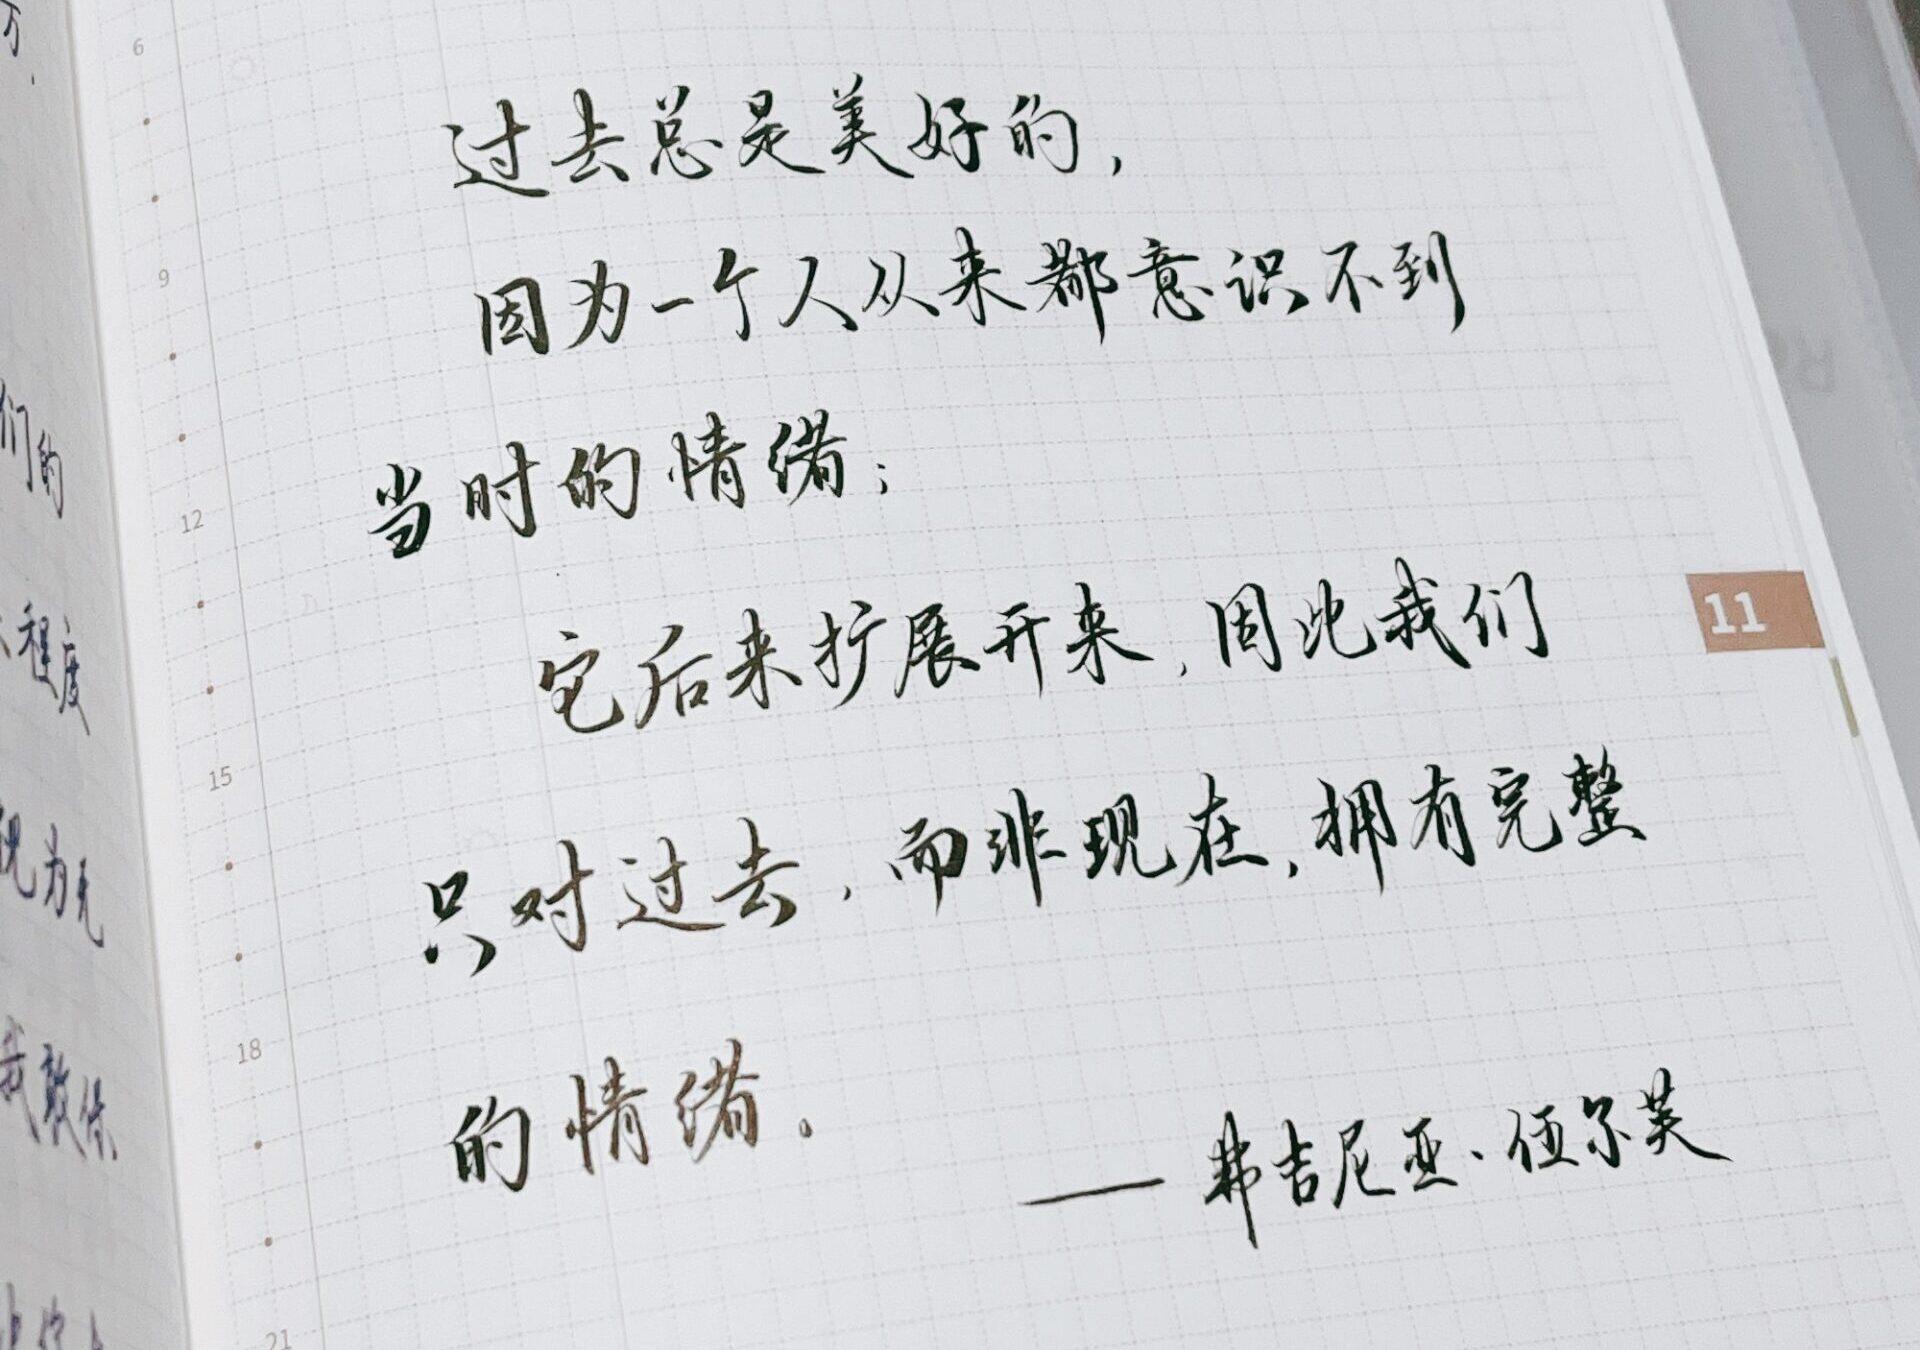 过去总是美好的，
因为一个人从来都意识不到
当时的情绪；
它后来扩展开来，因此我们
只对过去，而非现在，拥有完整
的情绪。
——弗吉尼亚·伍尔芙
6
9
12
15
18
21
11
们的
程度
视为无
我敢保